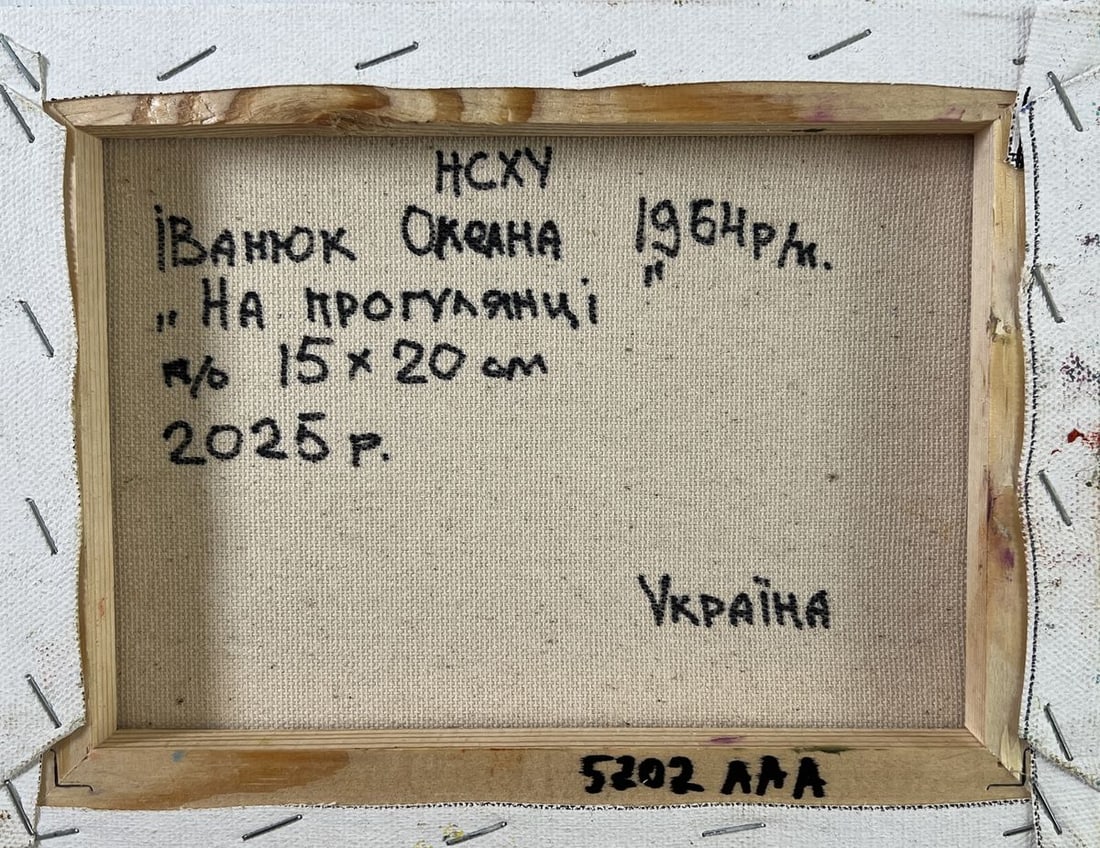 НСХУ
Іванюк Оксана 1964р/н.
„На прогулянці"
п/о 15 x 20 см
2025 р.
Україна
5202 ААА